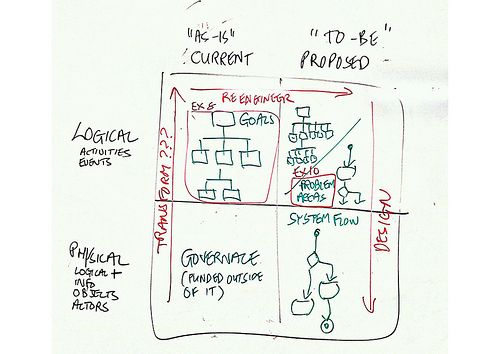 "AS-IS"
CURRENT
"TO-BE"
PROPOSED
REENGINEER
EX 5
GOALS
LOGICAL
ACTIVITIES
EVENTS
TRANSFORM ???
EX 10
PROBLEM
AREAS
DESIGN
SYSTEM FLOW
PHYSICAL
LOGICAL +
INFO
OBJECTS
ACTORS
GOVERNANCE
(FUNDED OUTSIDE
OF IT)